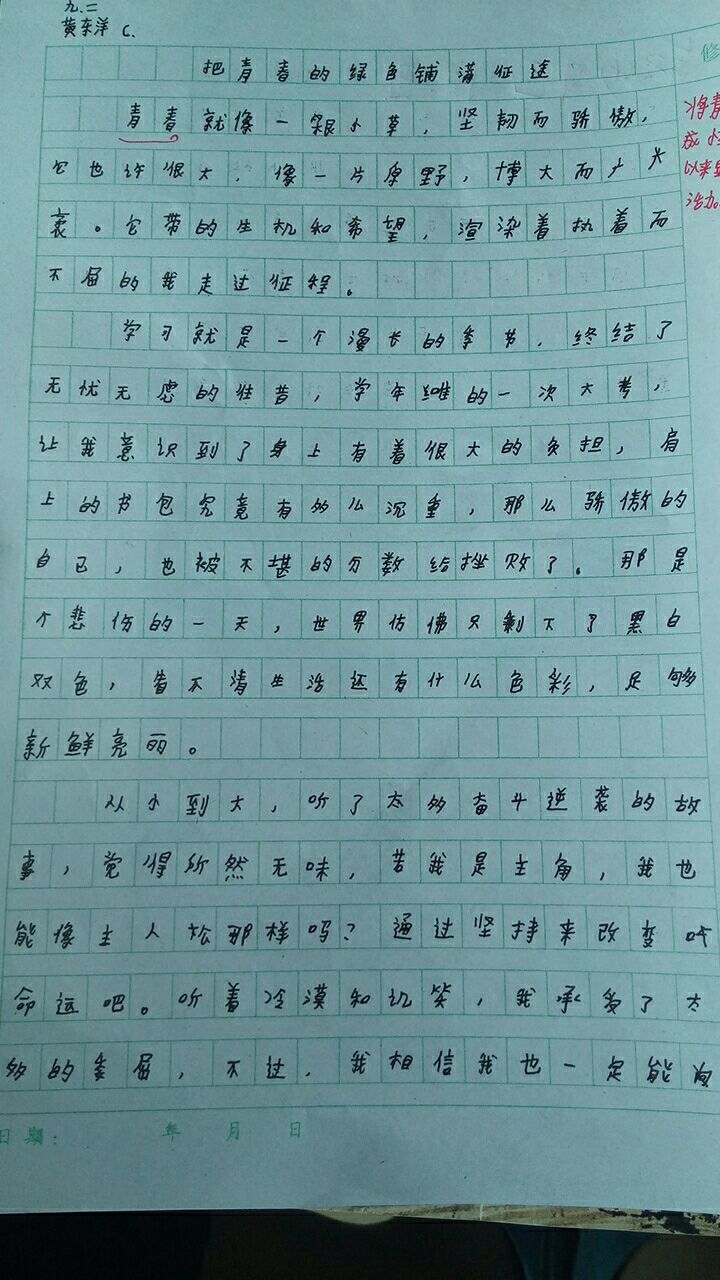 九.二
黄东洋 C.
把青春的绿色铺满征途
青春就像一棵小草，坚韧而骄傲，
它也许很大，像一片原野，博大而广兴
衰。它带的生机和希望，渲染着执着而
不屈的我走过征程。
学习就是一个漫长的季节，终结了
无忧无虑的往昔，学年的一次大考，
让我意识到了身上有着很大的负担，肩
上的书包究竟有多么沉重，那么骄傲的
自己，也被不堪的分数给挫败了。那是
个悲伤的一天，世界仿佛只剩下了黑白
双色，看不清生活还有什么色彩，足够
新鲜亮丽。
从小到大，听了太多奋斗逆袭的故
事，觉得所然无味，若我是主角，我也
能像主人松那样吗？通过坚持来改变
命运吧。听着冷漠和讥笑，我承受了太
多的委屈，不过，我相信我也一定能
将青
成小
以来
活力。
修
日期： 年 月 日